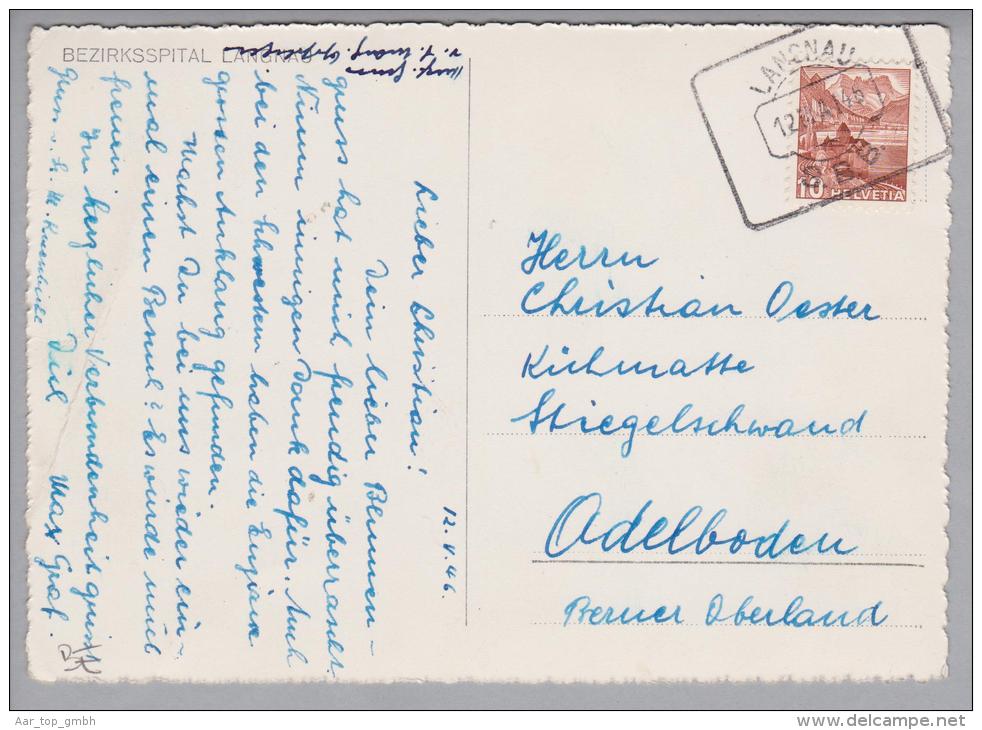 BEZIRKSSPITAL LANGNAU
12. V. 46.
Lieber Christian!
Dein lieber Blumen-
gruss hat mich freudig überrascht.
Nimm innigen Dank dafür. Auch
bei den Schwestern haben die Enziane
grossen Anklang gefunden.
Machst Du bei uns wieder ein-
mal einen Besuch? Es würde mich
freuen.
In herzlicher Verbundenheit grüsst
Dich Max Graf.
LANGNAU
12.V.46
10 HELVETIA
Herrn
Christian Oester
Kühmatte
Stiegelschwand
Adelboden
Berner Oberland
Aar_top_gmbh
www.delcampe.net